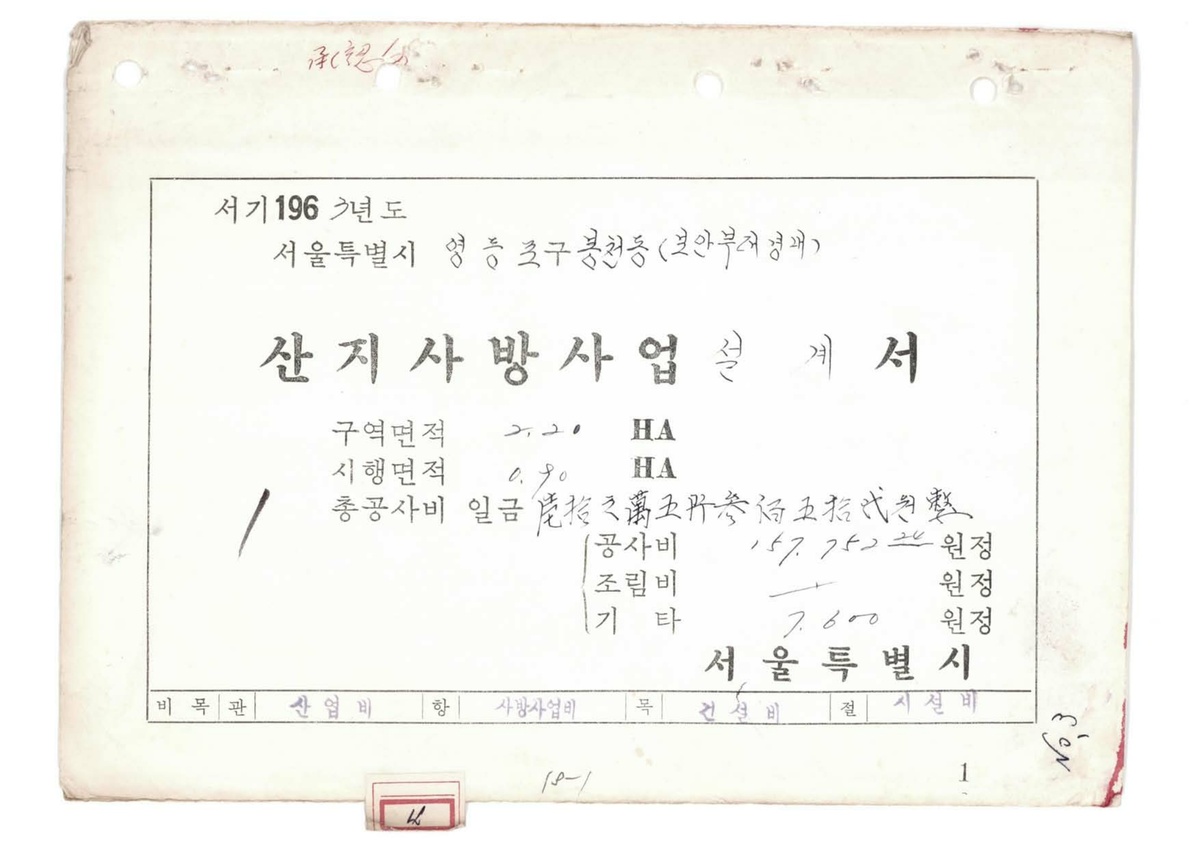 서기1963년도
서울특별시 영등포구봉천동(보안부재경내)
산지사방사업설계서
구역면적 2.20 HA
시행면적 0.90 HA
총공사비 일금 壱拾六萬五阡參佰五拾弐원整
공사비 157,752 24 원정
조림비 — 원정
기 타 7,600 원정
서울특별시
비 목 관 산업비 항 사방사업비 목 건설비 절 시설비
18-1
1